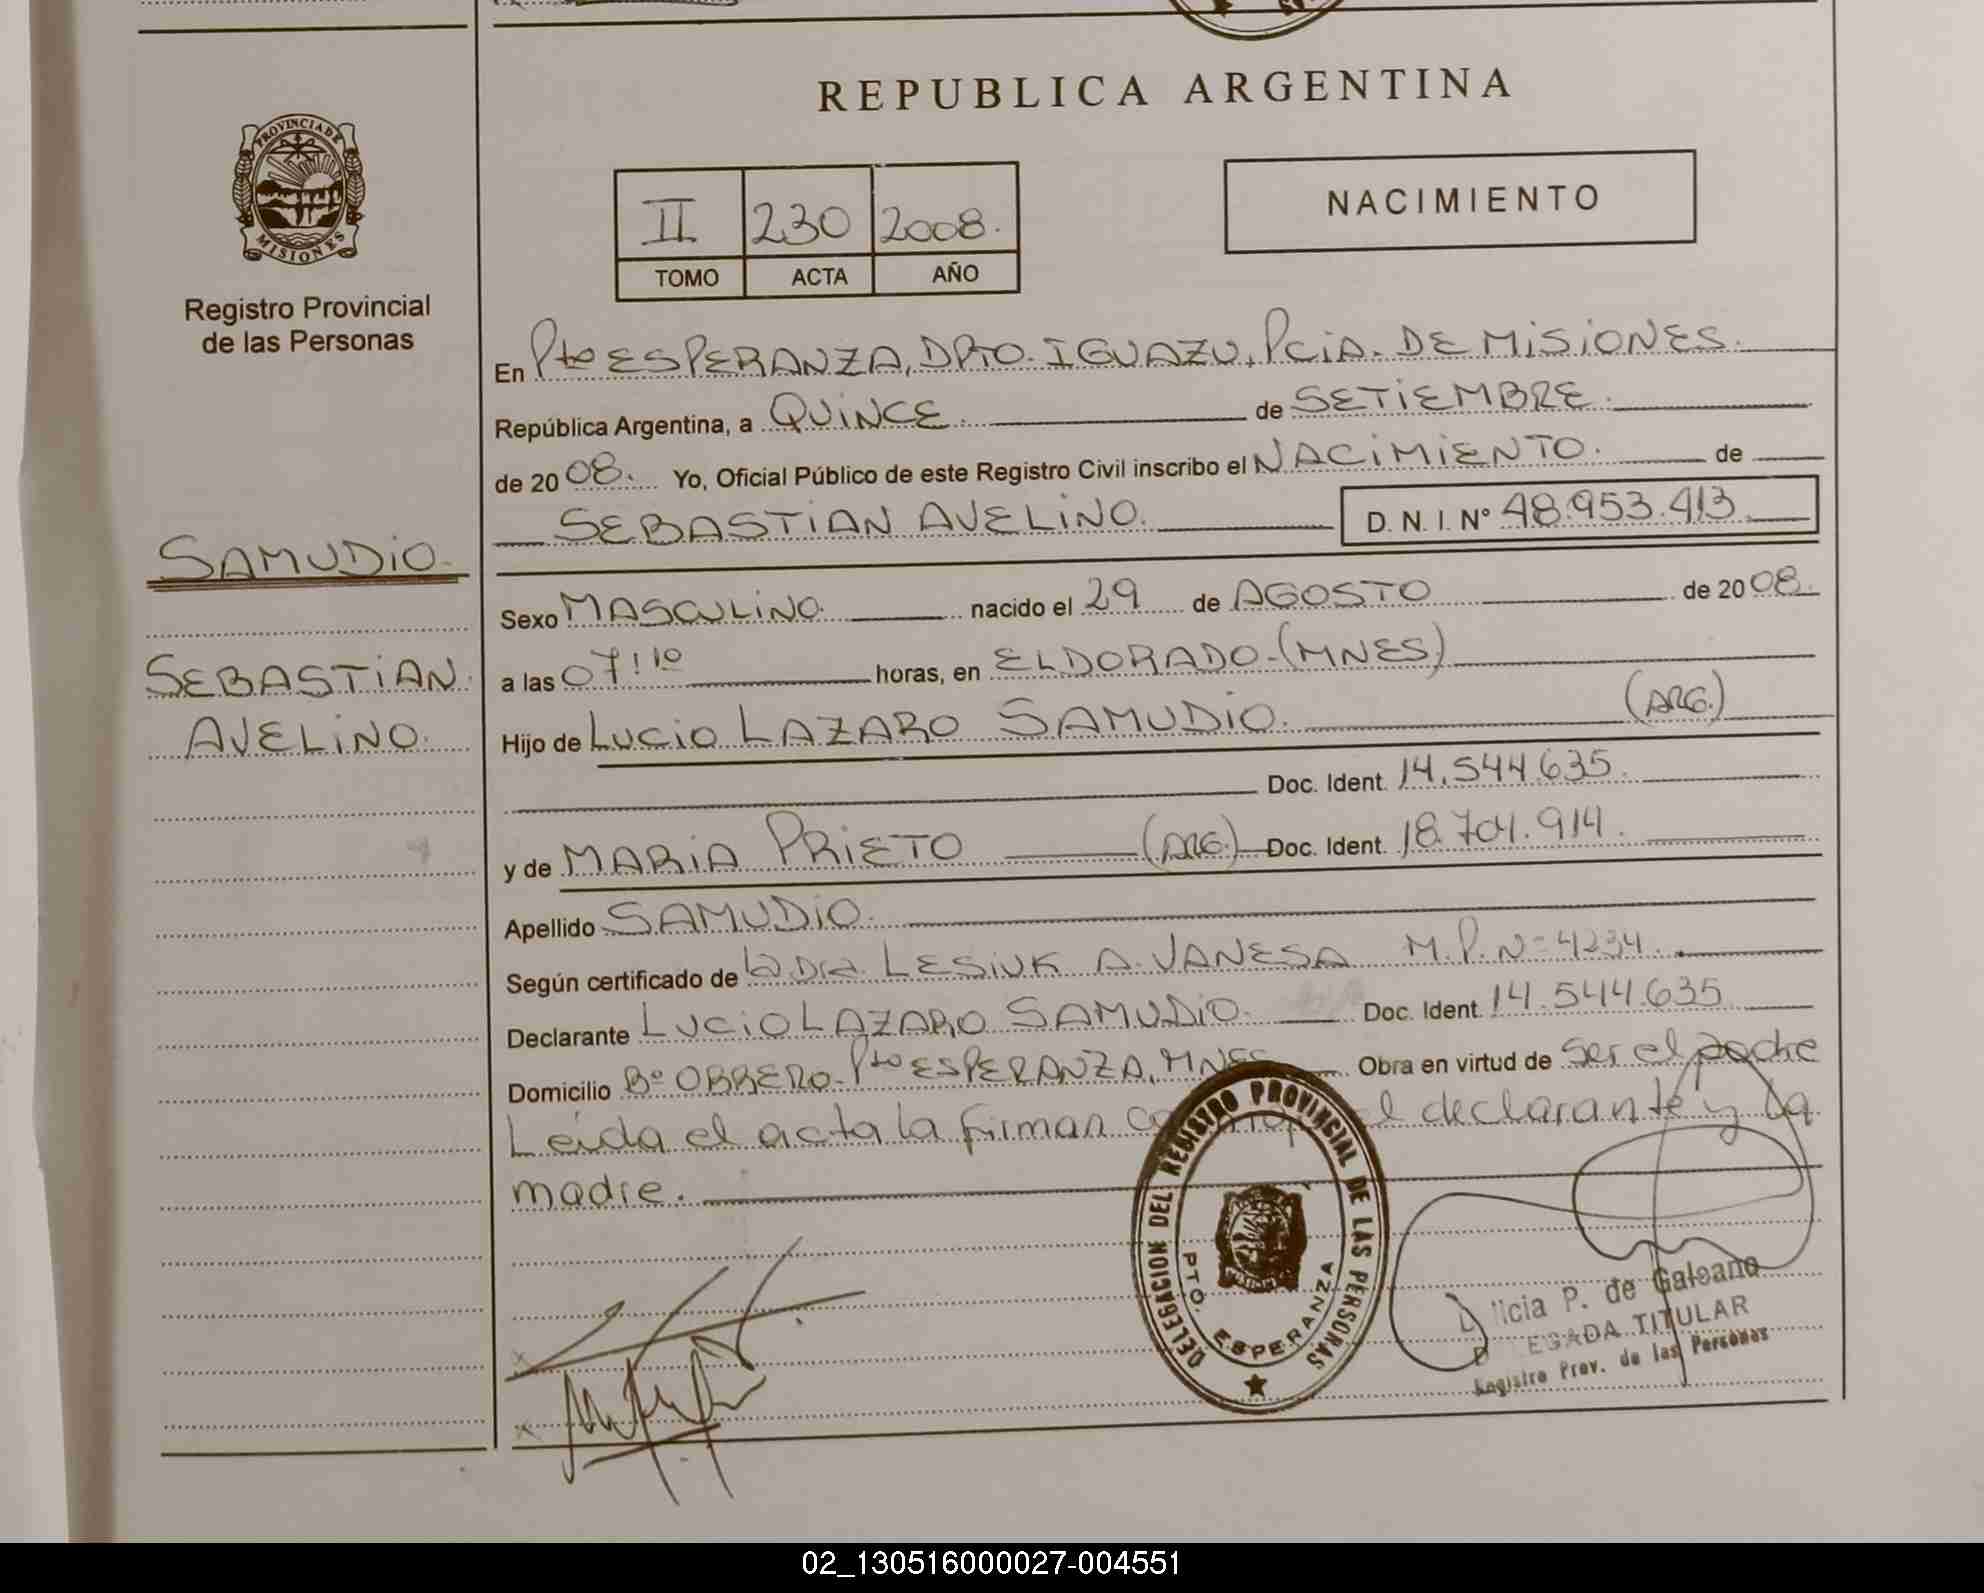 REPUBLICA ARGENTINA
PROVINCIA DE
MISIONES
Registro Provincial
de las Personas
II 230 2008.
TOMO ACTA AÑO
NACIMIENTO
En Pto ESPERANZA, DPTO. IGUAZU, PCiA. DE MiSiONES.
República Argentina, a QUiNCE. de SETiEMBRE.
de 2008. Yo, Oficial Público de este Registro Civil inscribo el NACiMiENTO. de
SEBASTiAN AVELiNO. D. N. I. Nº 48.953.413
SAMUDiO.
Sexo MASCULiNO. nacido el 29 de AGOSTO de 2008.
SEBASTiAN
AVELiNO.
a las 07:10 horas, en ELDORADO-(MNES)
Hijo de LUCiO LAZARO SAMUDiO. (ARG.)
Doc. Ident. 14.544.635.
y de MARiA PRiETO (ARG.) Doc. Ident. 18.704.914.
Apellido SAMUDiO.
Según certificado de la DRA. LESiUK A. VANESA M.P. Nº 4234.
Declarante LUCiO LAZARO SAMUDiO. Doc. Ident. 14.544.635
Domicilio Bº OBRERO- Pto ESPERANZA, MNES Obra en virtud de ser el padre
Leida el acta la firman el declarante y la
madre.
DELEGACION DEL REGISTRO PROVINCIAL DE LAS PERSONAS
PTO. ESPERANZA
licia P. de Galeano
EGADA TITULAR
Registro Prov. de las Personas
02_130516000027-004551